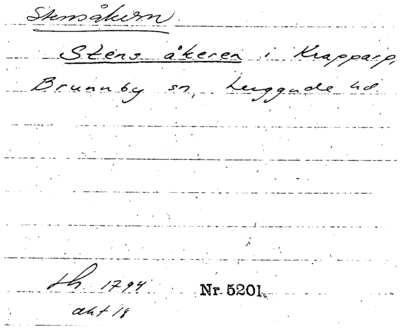 Stensåkern.
Stens åkeren i Krapparp,
Brunnby sn, Luggude hd
Sk 1794 Nr. 5201.
akt 18